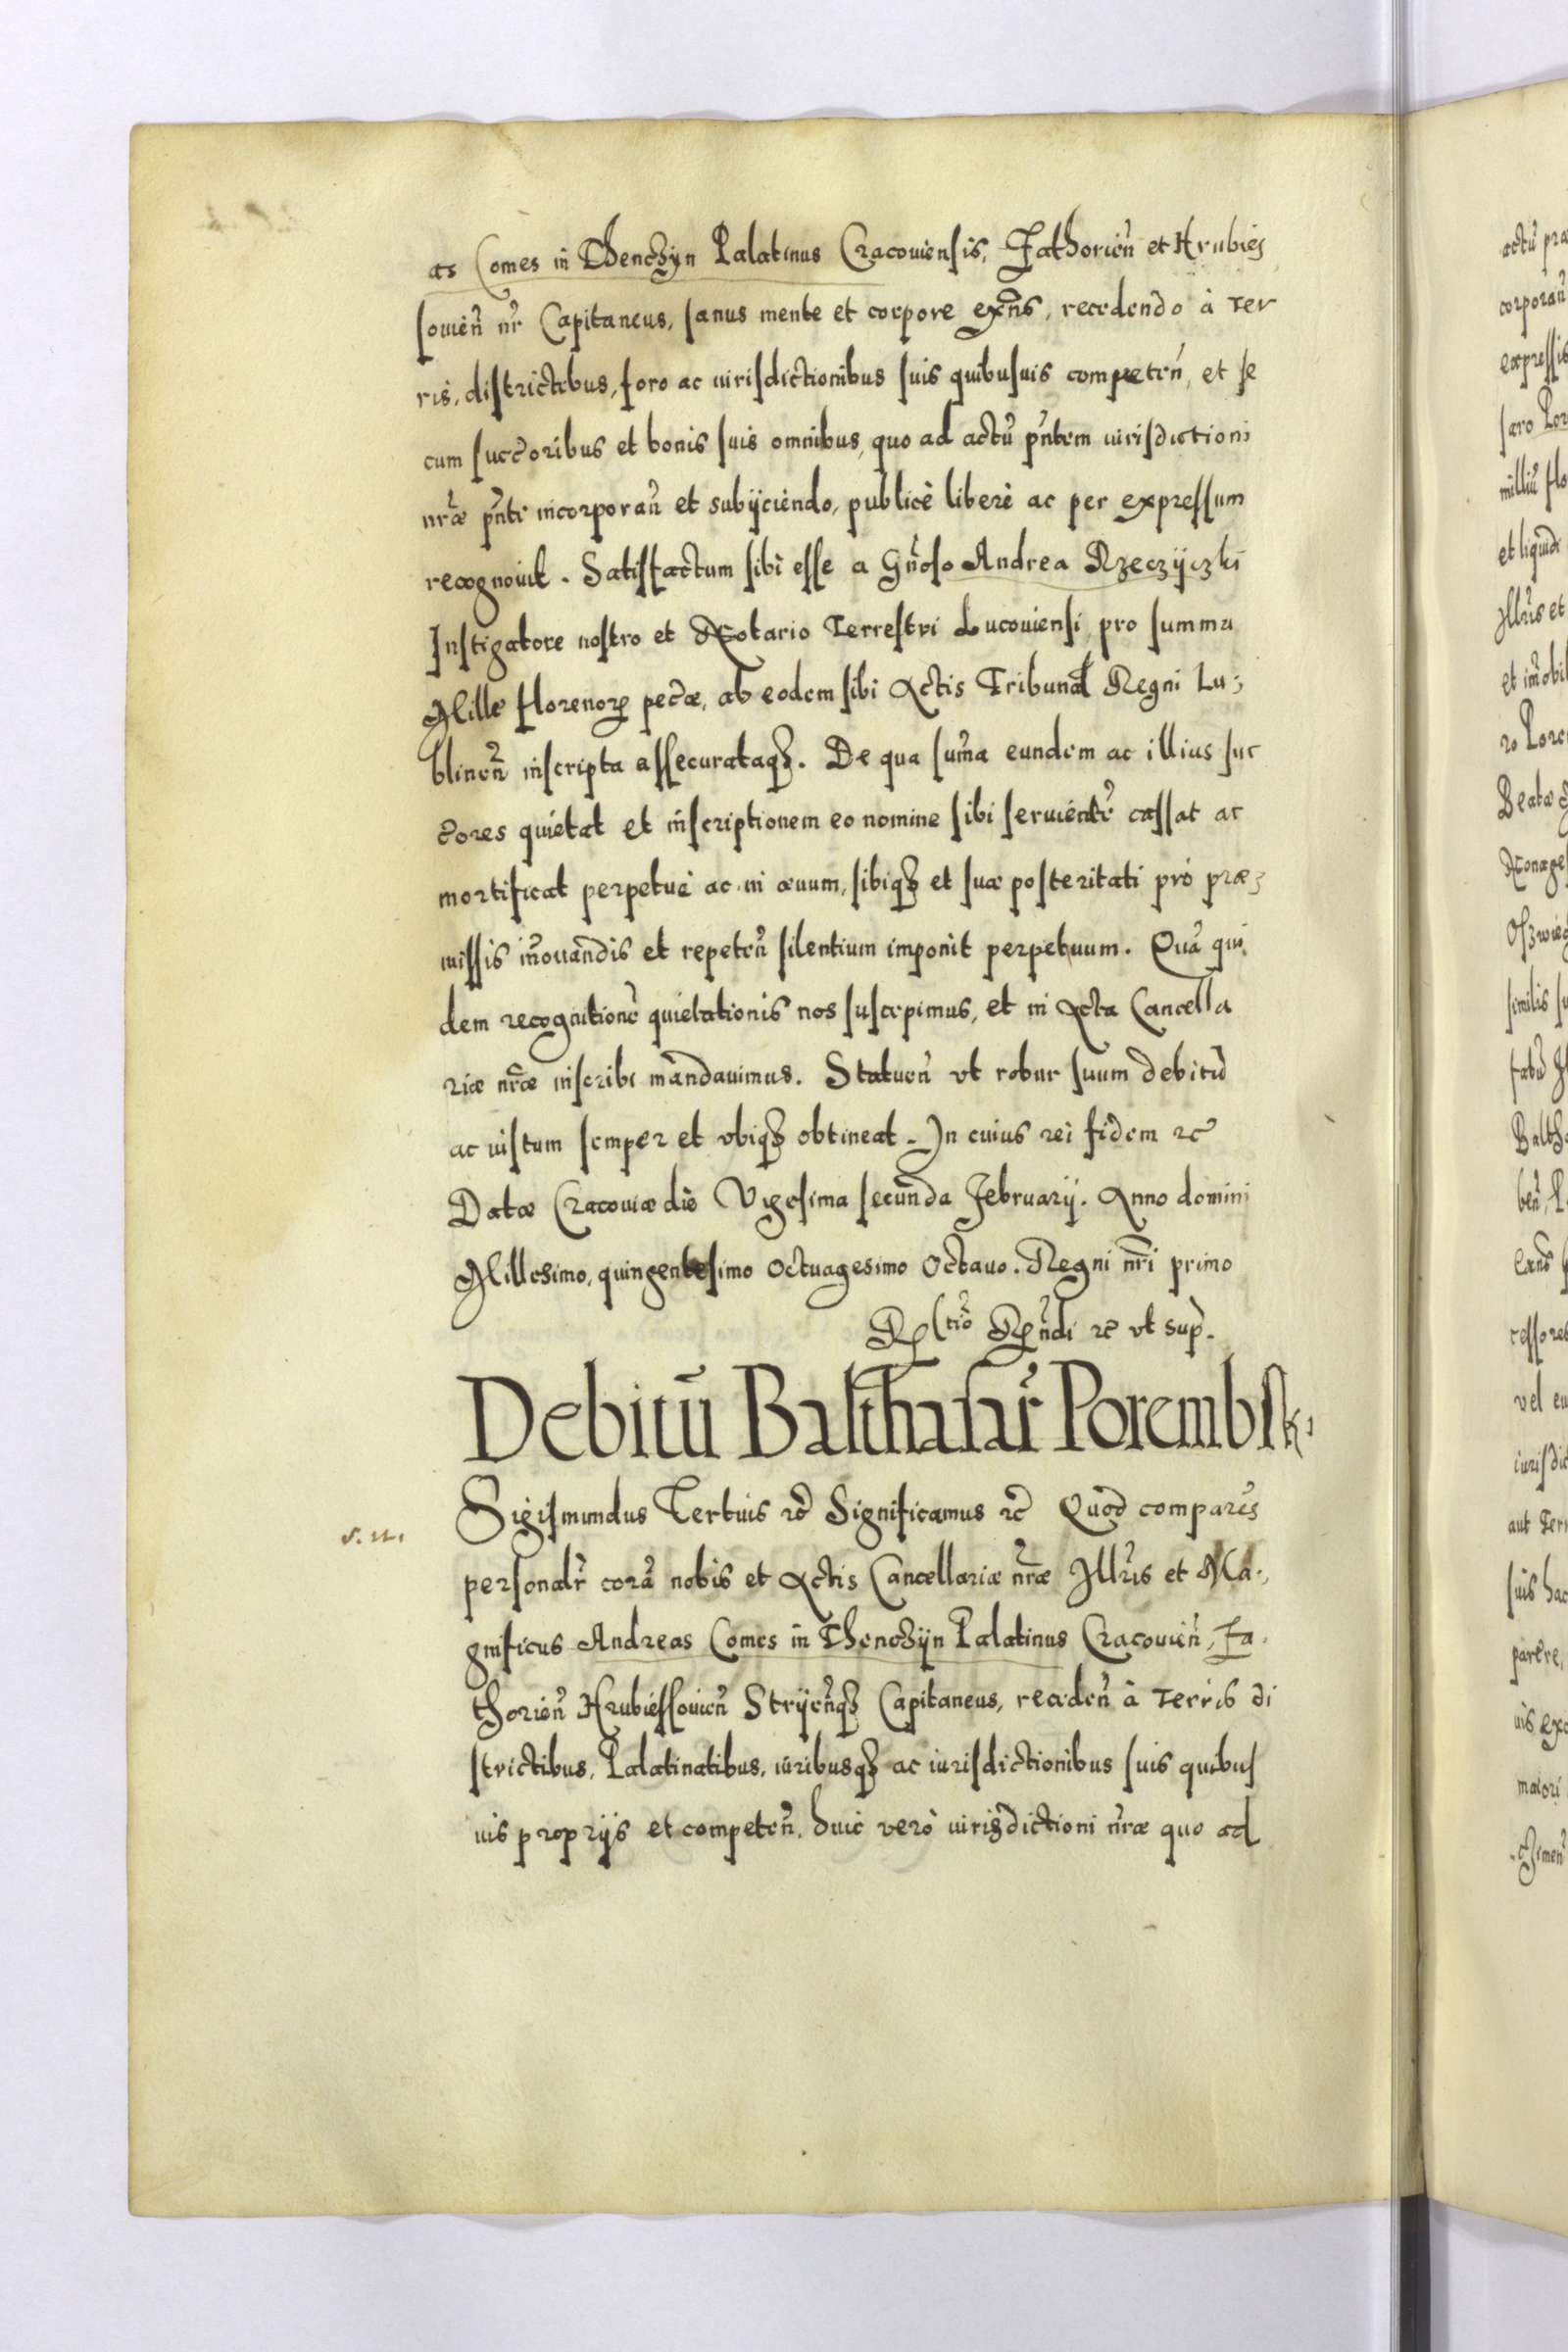 as Comes in Thenczyn Palatinus Cracouiensis, Zathorien̄ et Hrubieſ
ſouien̄ nr̄ Capitaneus, ſanus mente et corpore exn̄s, recedendo à Ter
ris, diſtrictibus, foro ac iuriſdictionibus ſuis quibuſuis competen̄, et ſe
cum ſucc̄oribus et bonis ſuis omnibus, quo ad actū pn̄tem iuriſdictioni
nr̄æ pn̄ti incorporan̄ et subijciendo, publicè liberè ac per expreſſum
recognouit. Satiſfactum ſibi eſſe a Gn̄oſo Andrea Rzeczÿczki
Inſtigatore noſtro et Notario Terreſtri Lucouienſi pro ſumma
Mille florenorꝝ pec̄æ, ab eodem ſibi Actis Tribunal̄ Regni Lu⸗
blinen̄ inſcripta aſſecurataqꝫ. De qua ſum̄a eundem ac illius ſuc
c̄ores quietat et inſcriptionem eo nomine ſibi ſeruientē caſſat ac
mortificat perpetuè ac in æuum, ſibiqꝫ et ſuæ poſteritati pro præ⸗
miſſis in̄ouandis et repeten̄ ſilentium imponit perpetuum. Quā qui
dem recognitionē quietationis nos ſuſcepimus, et in Acta Cancella
riæ nr̄æ inſcribi mandauimus. Statuen̄ vt robur ſuum debitū
ac iuſtum ſemper et vbiqꝫ obtineat. In cuius rei fidem ꝛc̄
Datæ Cracouiæ die Vigeſima ſecunda February. Anno domini
Milleſimo, quingenteſimo Octuagesimo Octauo. Regni nr̄i primo
Rꝑ(tiō Rꝑn̄di ꝛc vt sup̄.
Debitū Balthaſar̄ Porembſki
Sigiſmundus Tertius ꝛc̄ Significamus ꝛc̄ Quod comparēs
perſonalr̄ corā nobis et Actis Cancellariæ nr̄æ Illr̄is et Ma⸗
gnificus Andreas Comes in Thenczÿn Palatinus Cracouien̄, Za⸗
thorien̄ Hrubieſſouien̄ Strÿen̄qꝫ Capitaneus, receden̄ à Terris di
s. n.
ſtrictibus, Palatinatibus, iuribusqꝫ ac iuriſdictionibus ſuis quibuſ
uis proprijs et competen̄. huic verò iurisdictioni nr̄æ quo ad